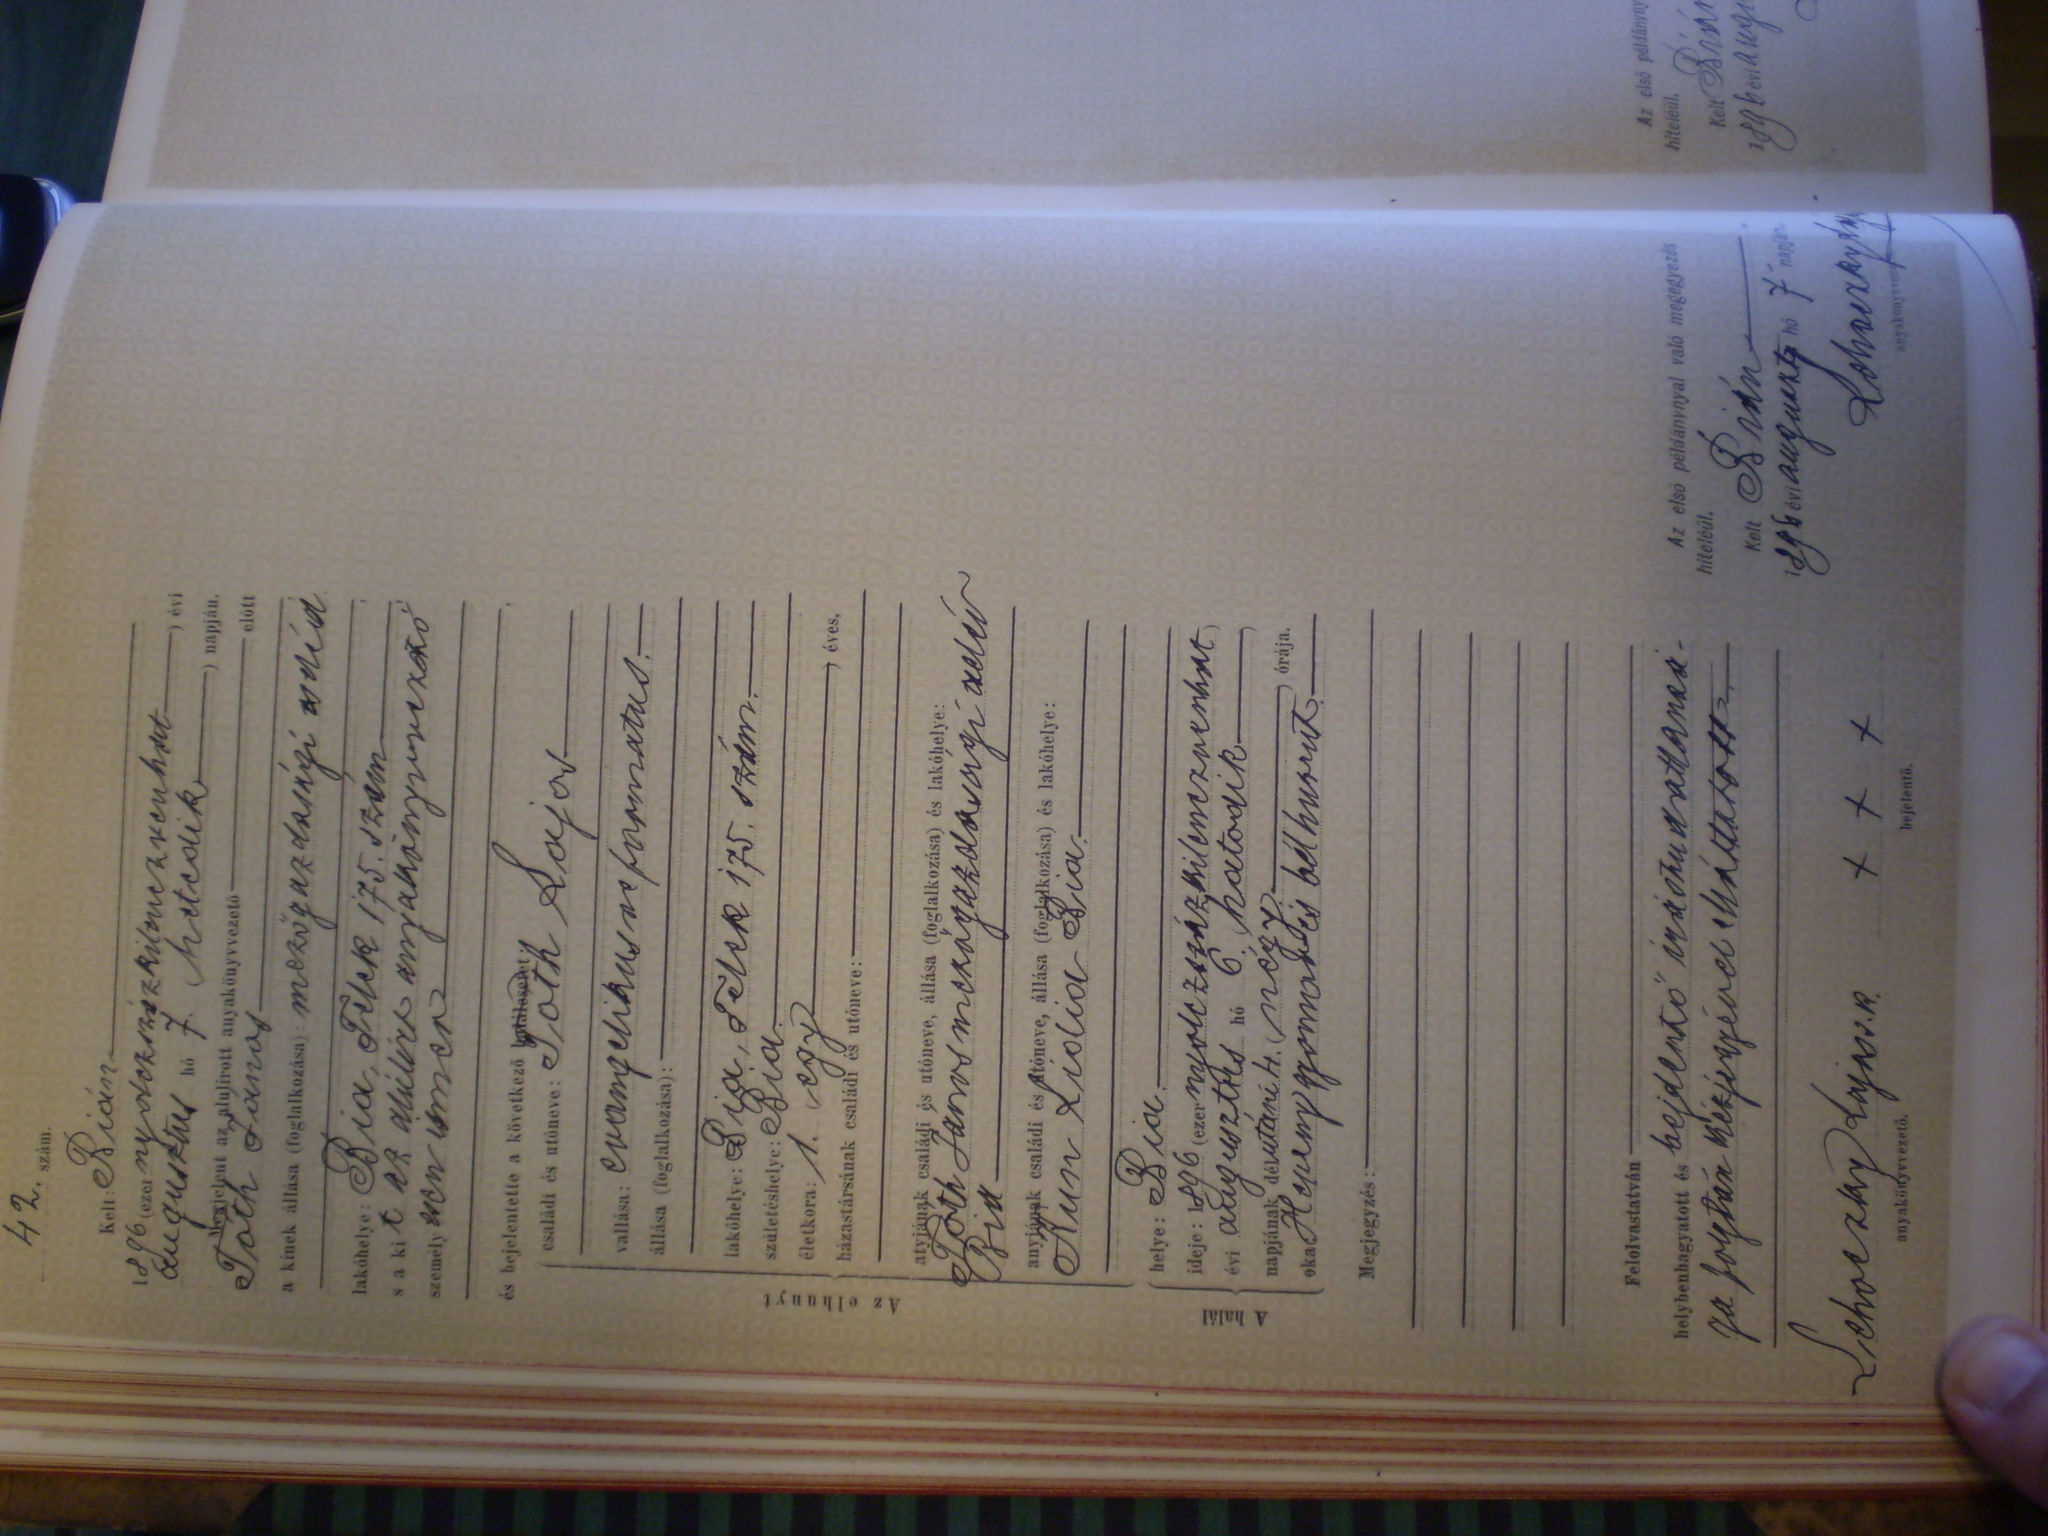 42. szám.
Kelt: Bián
1896 (ezer nyolczszázkilenczvenhat) évi
augusztus hó 7. (hetedik) napján.
Megjelent az alulirott anyakönyvvezető előtt
Tóth János
a kinek állása (foglalkozása): mezőgazdasági
lakóhelye: Bia, Telek 175. szám
s a kit az alulíró anyakönyvvezető
személyesen ismer
és bejelentette a következő halálesetet:
családi és utóneve: Tóth Lajos
vallása: evangelikus reformatus.
állása (foglalkozása):
lakóhelye: Bia, Telek 175. szám.
születéshelye: Bia.
életkora: 1. (egy) éves,
házastársának családi és utóneve:
Az elhunyt
atyjának családi és utóneve, állása (foglalkozása) és lakóhelye:
Tóth János mezőgazdasagi
Bia
anyjának családi és utóneve, állása (foglalkozása) és lakóhelye:
Kun Lidia Bia.
A halál
helye: Bia.
ideje: 1896 (ezer nyolczszázkilenczvenhat)
évi augusztus hó 6. (hatodik)
napjának délutáni 4. (négy) órája.
oka: Heveny gyomor és bélhurut.
Megjegyzés:
Felolvastatván
helybenhagyatott és bejelentő irástudatlansá-
ga folytán kézjegyével elláttatott.
Lehoczky Lajos s. k.
anyakönyvvezető.
+ + +
bejelentő.
Az első példánynyal való megegyezés
hiteléül.
Kelt Bián
1896 évi augusztus hó 7 napján.
Lehoczky
anyakönyvvezető
Az első példányny
hiteléül.
Kelt Bián
1896 évi augu